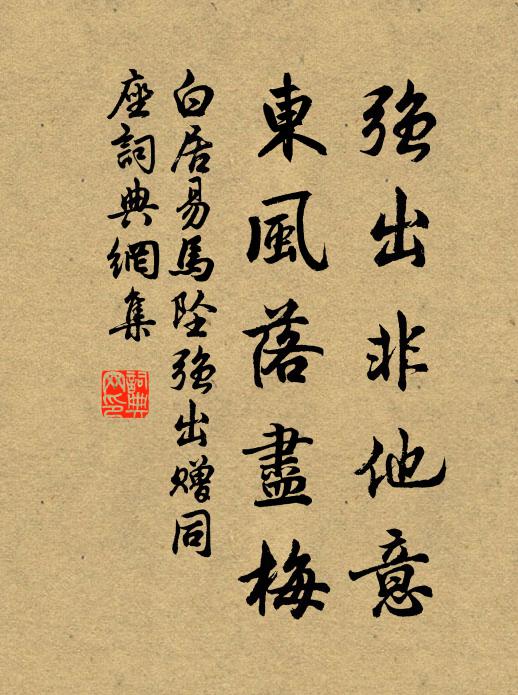 強出非他意
東風落盡梅
白居易馬墜強出贈同
座詞典網集
詞典
网印